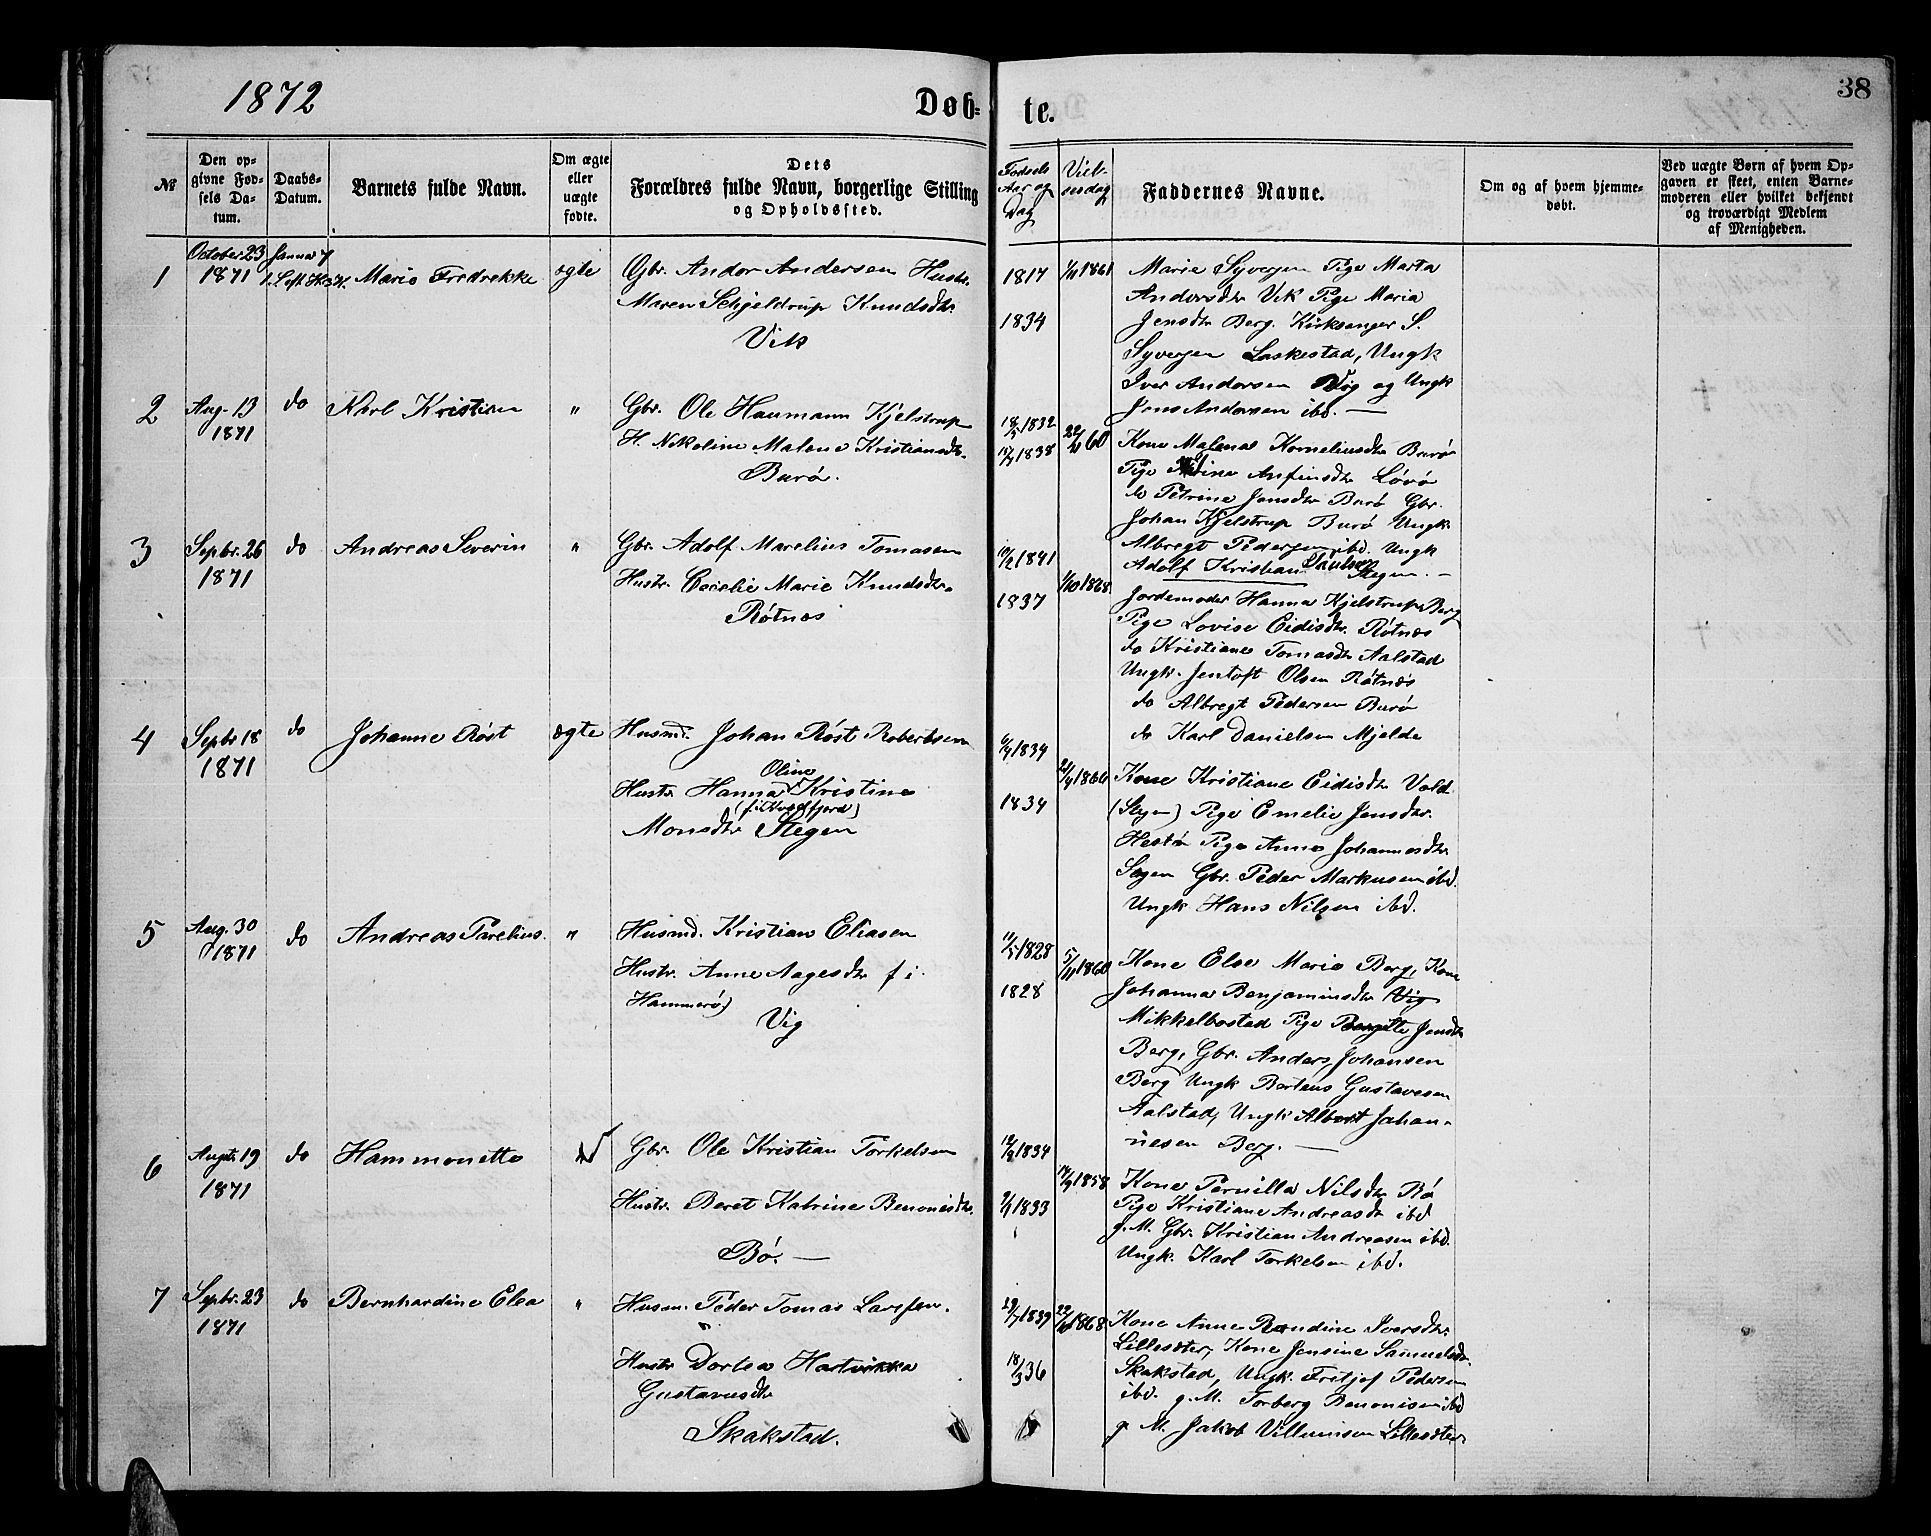 1872
Døb-
te.
38
№
Den op-
givne Fød-
sels Da-
tum.
Daabs-
Datum.
Barnets fulde Navn.
Om ægte
eller
uægte
fødte.
Dets
Forældres fulde Navn, borgerlige Stilling
og Opholdssted.
Fødsels
Aar og
Dag
Faddernes Navne.
Om og af hvem hjemme-
døbt.
Ved uægte Børn af hvem Op-
gaven er skeet, enten Barne-
moderen eller hvilket bekjendt
og troværdigt Medlem
af Menigheden.
1
October 23
1871
Januar 7
Marie Fredrekke
ægte
Gbr. Andor Andersen Hustr.
Maren Schjeldrup Knudsdtr.
Vik
1817
1834
1/11 1861
Marie Syversen Pige Marta
Andersdtr Vik Pige Maria
Jensdtr Berg. Kirksanger S.
Syversen Laskestad, Ungk
Iver Andersen Vig og Ungk
Jens Andersen ibd. —
2
Aug. 13
1871
do
Karl Kristian
"
Gbr. Ole Haumann Kjelstrup
H. Nikoline Malene Kristiansdtr.
Burø.
1832
1838
60
Kone Malena Korneliusdtr Burø
Pige Anfinsdtr Løvø
do Petrine Jensdtr Burø Gbr.
Johan Kjelstrup Burø Ungk
Albregt Pedersen ibd. Ungk
Adolf Kristian Paulsen
Stegen. —
3
Septbr. 26
1871
do
Andreas Severin
"
Gbr. Adolf Marelius Tomasen
Hustr. Cecelie Marie Knudsdtr.
Røtnes
1841
1837
1/10 1868
Jordemoder Hanna Kjelstrup Berg
Pige Lovise Eidisdtr. Røtnes
do Kristiane Tomasdtr Aalstad
Ungk. Jentoft Olsen Røtnes
do Albregt Pedersen Burø
do Karl Danielsen Mjelde
4
Septbr 18
1871
do
Johanne Røst
ægte
Husmd. Johan Røst Robertsen
Oline
Hustr Hanna Kristine
Monsdtr Stegen
1834
1834
1866
Kone Kristiane Eidisdtr Vold
(Stegen) Pige Emelie Jensdtr.
Pige Anne Johannesdtr.
Gbr. Peder Markusen ibd.
Ungk Hans Nilsen ibd.
5
Aug. 30
1871
do
Andreas Parelius.
"
Husmd. Kristian Eliasen
Hustr. Anne Aagesdtr f i
Hammerø)
Vig
11/5 1828
1828
5/11 1860
Kone Else Marie Berg, Kone
Johanna Benjaminsdtr Vig
Mikkelbostad Pige Jensdtr
Berg, Gbr. Anders Johansen
Berg Ungk Berteus Gustavesen
Aalstad, Ungk Albert Johan-
nesen Berg. —
6
Augst. 19
1871
do
Hammonette
Gbr. Ole Kristian Torkelsen
Hustr. Beret Katrine Benonisdtr.
Bø. —
1834
1833
1858
Kone Pernilla Nilsdtr Bø
Pige Kristiane Andreasdtr ibd
g. M. Gbr. Kristian Andreasen ibd.
Ungk. Karl Torkelsen ibd.
7
Septbr. 23
1871
do
Bernhardine Elea
"
Husm. Peder Tomas Larssen.
Hustr Dortea Hartvikka
Gustavusdtr
Skakstad.
29/7 1839
18/3 36
1868
Kone Anne Randine Iversdtr.
Kone Jensine Samuelsdtr
Skakstad, Ungk. Fritjof Pedersen
ibd. g. M. Torberg Benonisen ibd
g M. Jakob Villumsen